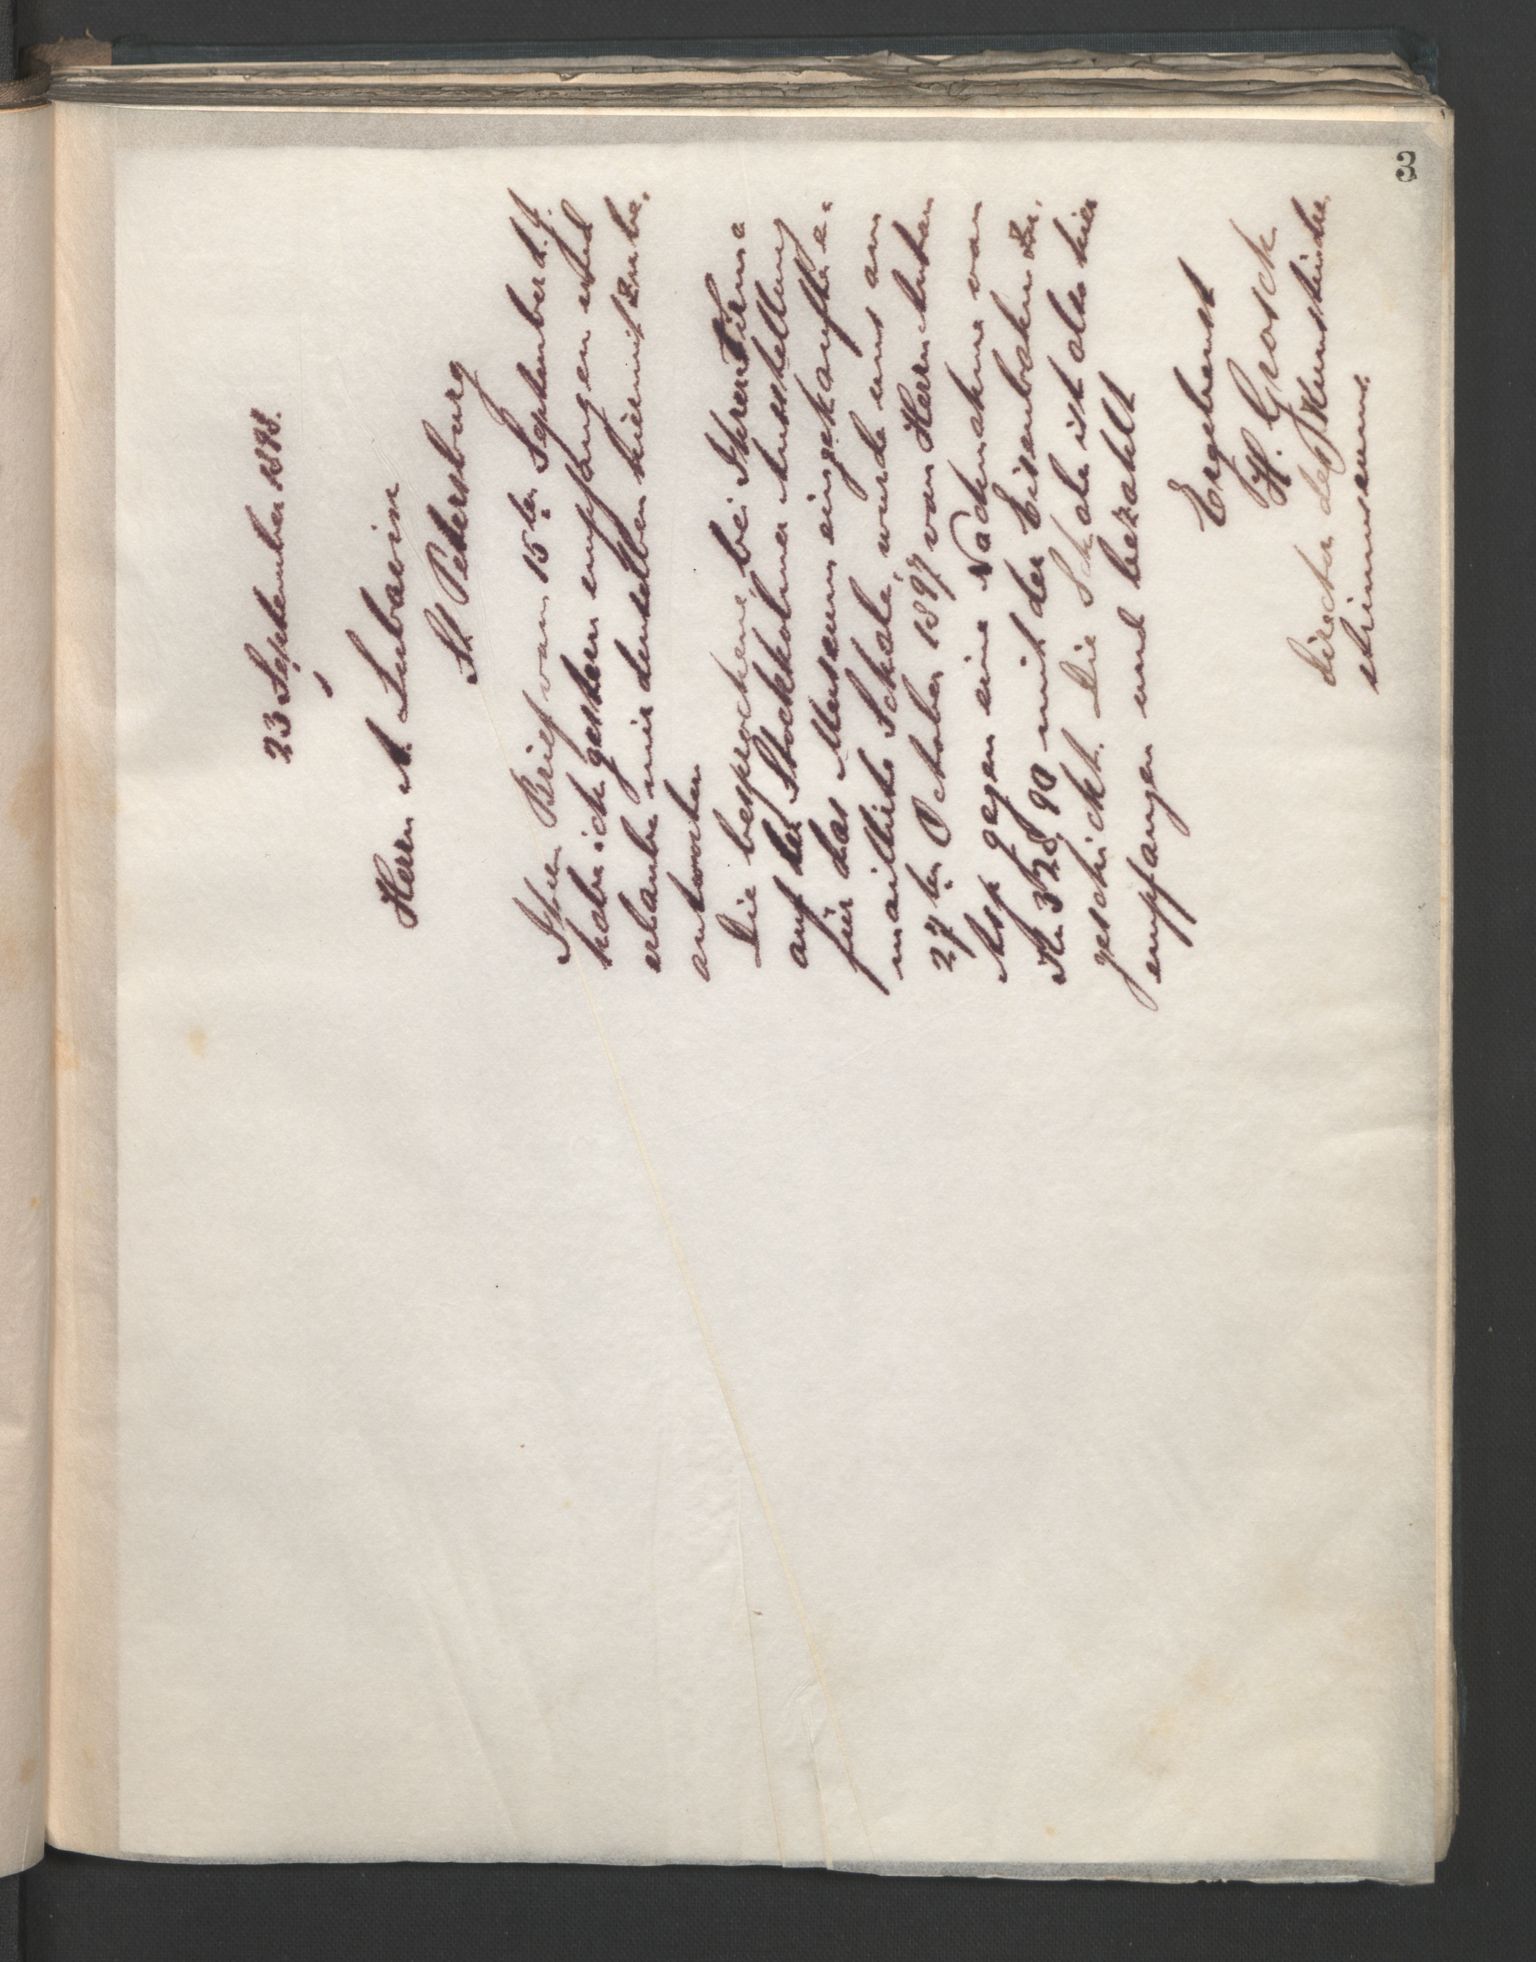 3
23 September 1898.
Herrn A. Lubavin
St Petersburg
Ihren Brief vom 15ten September d. J.
habe ich gestern empfangen und
erlaube mir denselben hiermit zu be-
antworten
Die besprochene, bei Ihrer Firma
auf der Stockholmer Ausstellung
für das Museum eingekaufte e-
maillirte Schale, wurde uns am
27ten October 1897 von Herrn Anton
Asp gegen eine Nachnahme von
Kr. 328,90 mit der Eisenbahn zu-
geschickt. Die Schale ist also hier
empfangen und bezahlt
Ergebenst
H. Grosch
Director des Kunstindu-
striemuseums.